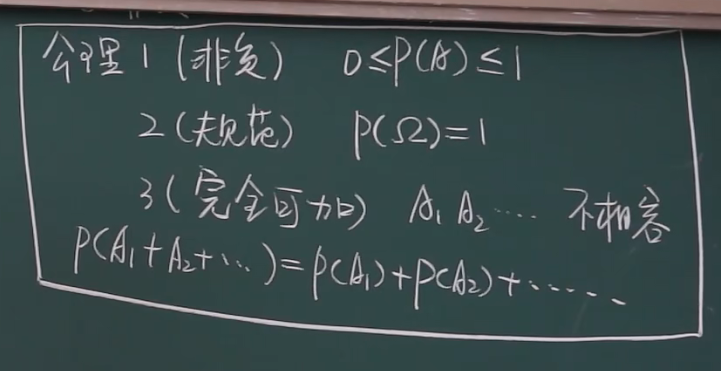 公理 1 (非负) 0≤P(A)≤1
2 (规范) P(Ω)=1
3 (完全可加) A₁ A₂ ⋯⋯ 不相容
P(A₁+A₂+⋯)=P(A₁)+P(A₂)+⋯⋯